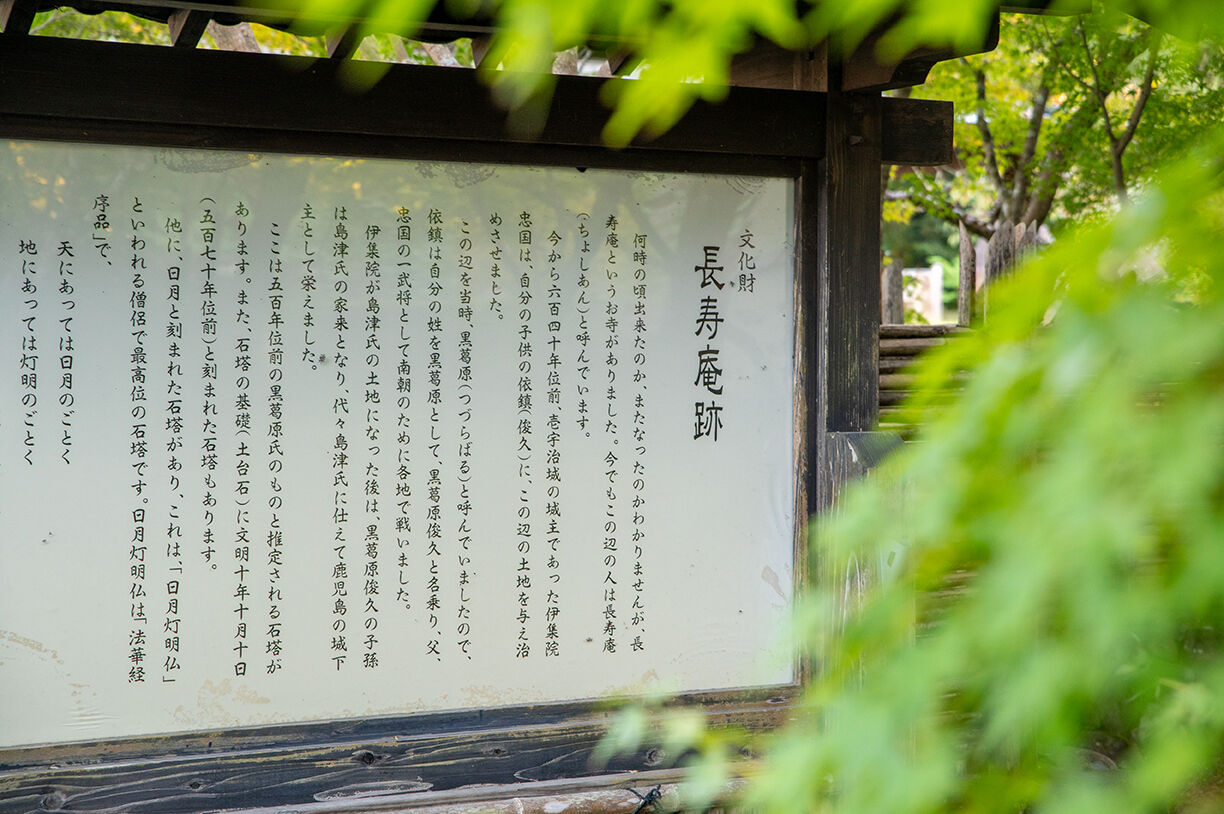 文化財
長寿庵跡
何時の頃出来たのか、またなったのかわかりませんが、長
寿庵というお寺がありました。今でもこの辺の人は長寿庵
(ちょしあん)と呼んでいます。
今から六百四十年位前、壱宇治城の城主であった伊集院
忠国は、自分の子供の依鎮(俊久)に、この辺の土地を与え治
めさせました。
この辺を当時、黒葛原(つづらばる)と呼んでいましたので、
依鎮は自分の姓を黒葛原として、黒葛原俊久と名乗り、父、
忠国の一武将として南朝のために各地で戦いました。
伊集院が島津氏の土地になった後は、黒葛原俊久の子孫
は島津氏の家来となり、代々島津氏に仕えて鹿児島の城下
主として栄えました。
ここは五百年位前の黒葛原氏のものと推定される石塔が
あります。また、石塔の基礎(土台石)に文明十年十月十日
(五百七十年位前)と刻まれた石塔もあります。
他に、日月と刻まれた石塔があり、これは、「日月灯明仏」
といわれる僧侶で最高位の石塔です。日月灯明仏は「法華経
序品」で、
天にあっては日月のごとく
地にあっては灯明のごとく